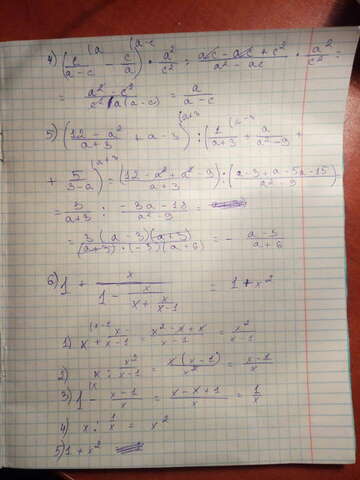 4) (c/(a-c) - c/a) · a²/c² = (ac - ac + c²)/(a² - ac) · a²/c² =
= (a² · c²)/(c² · a(a-c)) = a/(a-c)
5) ((12 - a²)/(a+3) + a - 3) : (1/(a+3) + a/(a²-9) +
+ 5/(3-a)) = ((12 - a² + a² - 9)/(a+3)) : ((a - 3 + a - 5a - 15)/(a² - 9))
= 3/(a+3) : (-3a - 18)/(a² - 9) =
= (3(a-3)(a+3))/((a+3)·(-3)(a+6)) = - (a-3)/(a+6)
6) 1 + x/(1 - x/(x + x/(x-1))) = 1 + x²
1) x + x/(x-1) = (x² - x + x)/(x-1) = x²/(x-1)
2) x : x²/(x-1) = x(x-1)/x² = (x-1)/x
3) 1 - (x-1)/x = (x - x + 1)/x = 1/x
4) x : 1/x = x²
5) 1 + x²